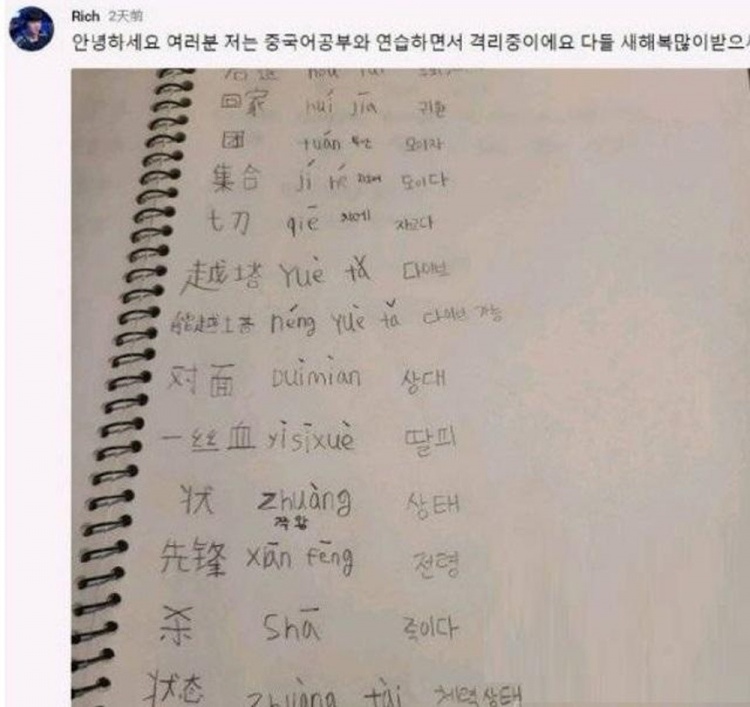 Rich 2天前
안녕하세요 여러분 저는 중국어공부와 연습하면서 격리중이에요 다들 새해복많이받으
hòu
回家 huí jiā 귀환
团 tuán 모이자
集合 jí hé 모이다
切 qiē 치에 자르다
越塔 Yuè tǎ 다이브
能越塔 néng yuè tǎ 다이브 가능
对面 Duìmiàn 상대
一丝血 yìsīxuè 딸피
状 zhuàng 상태
쭈왕
先锋 xiān fēng 전령
杀 Shā 죽이다
状态 zhuàng tài 체력상태